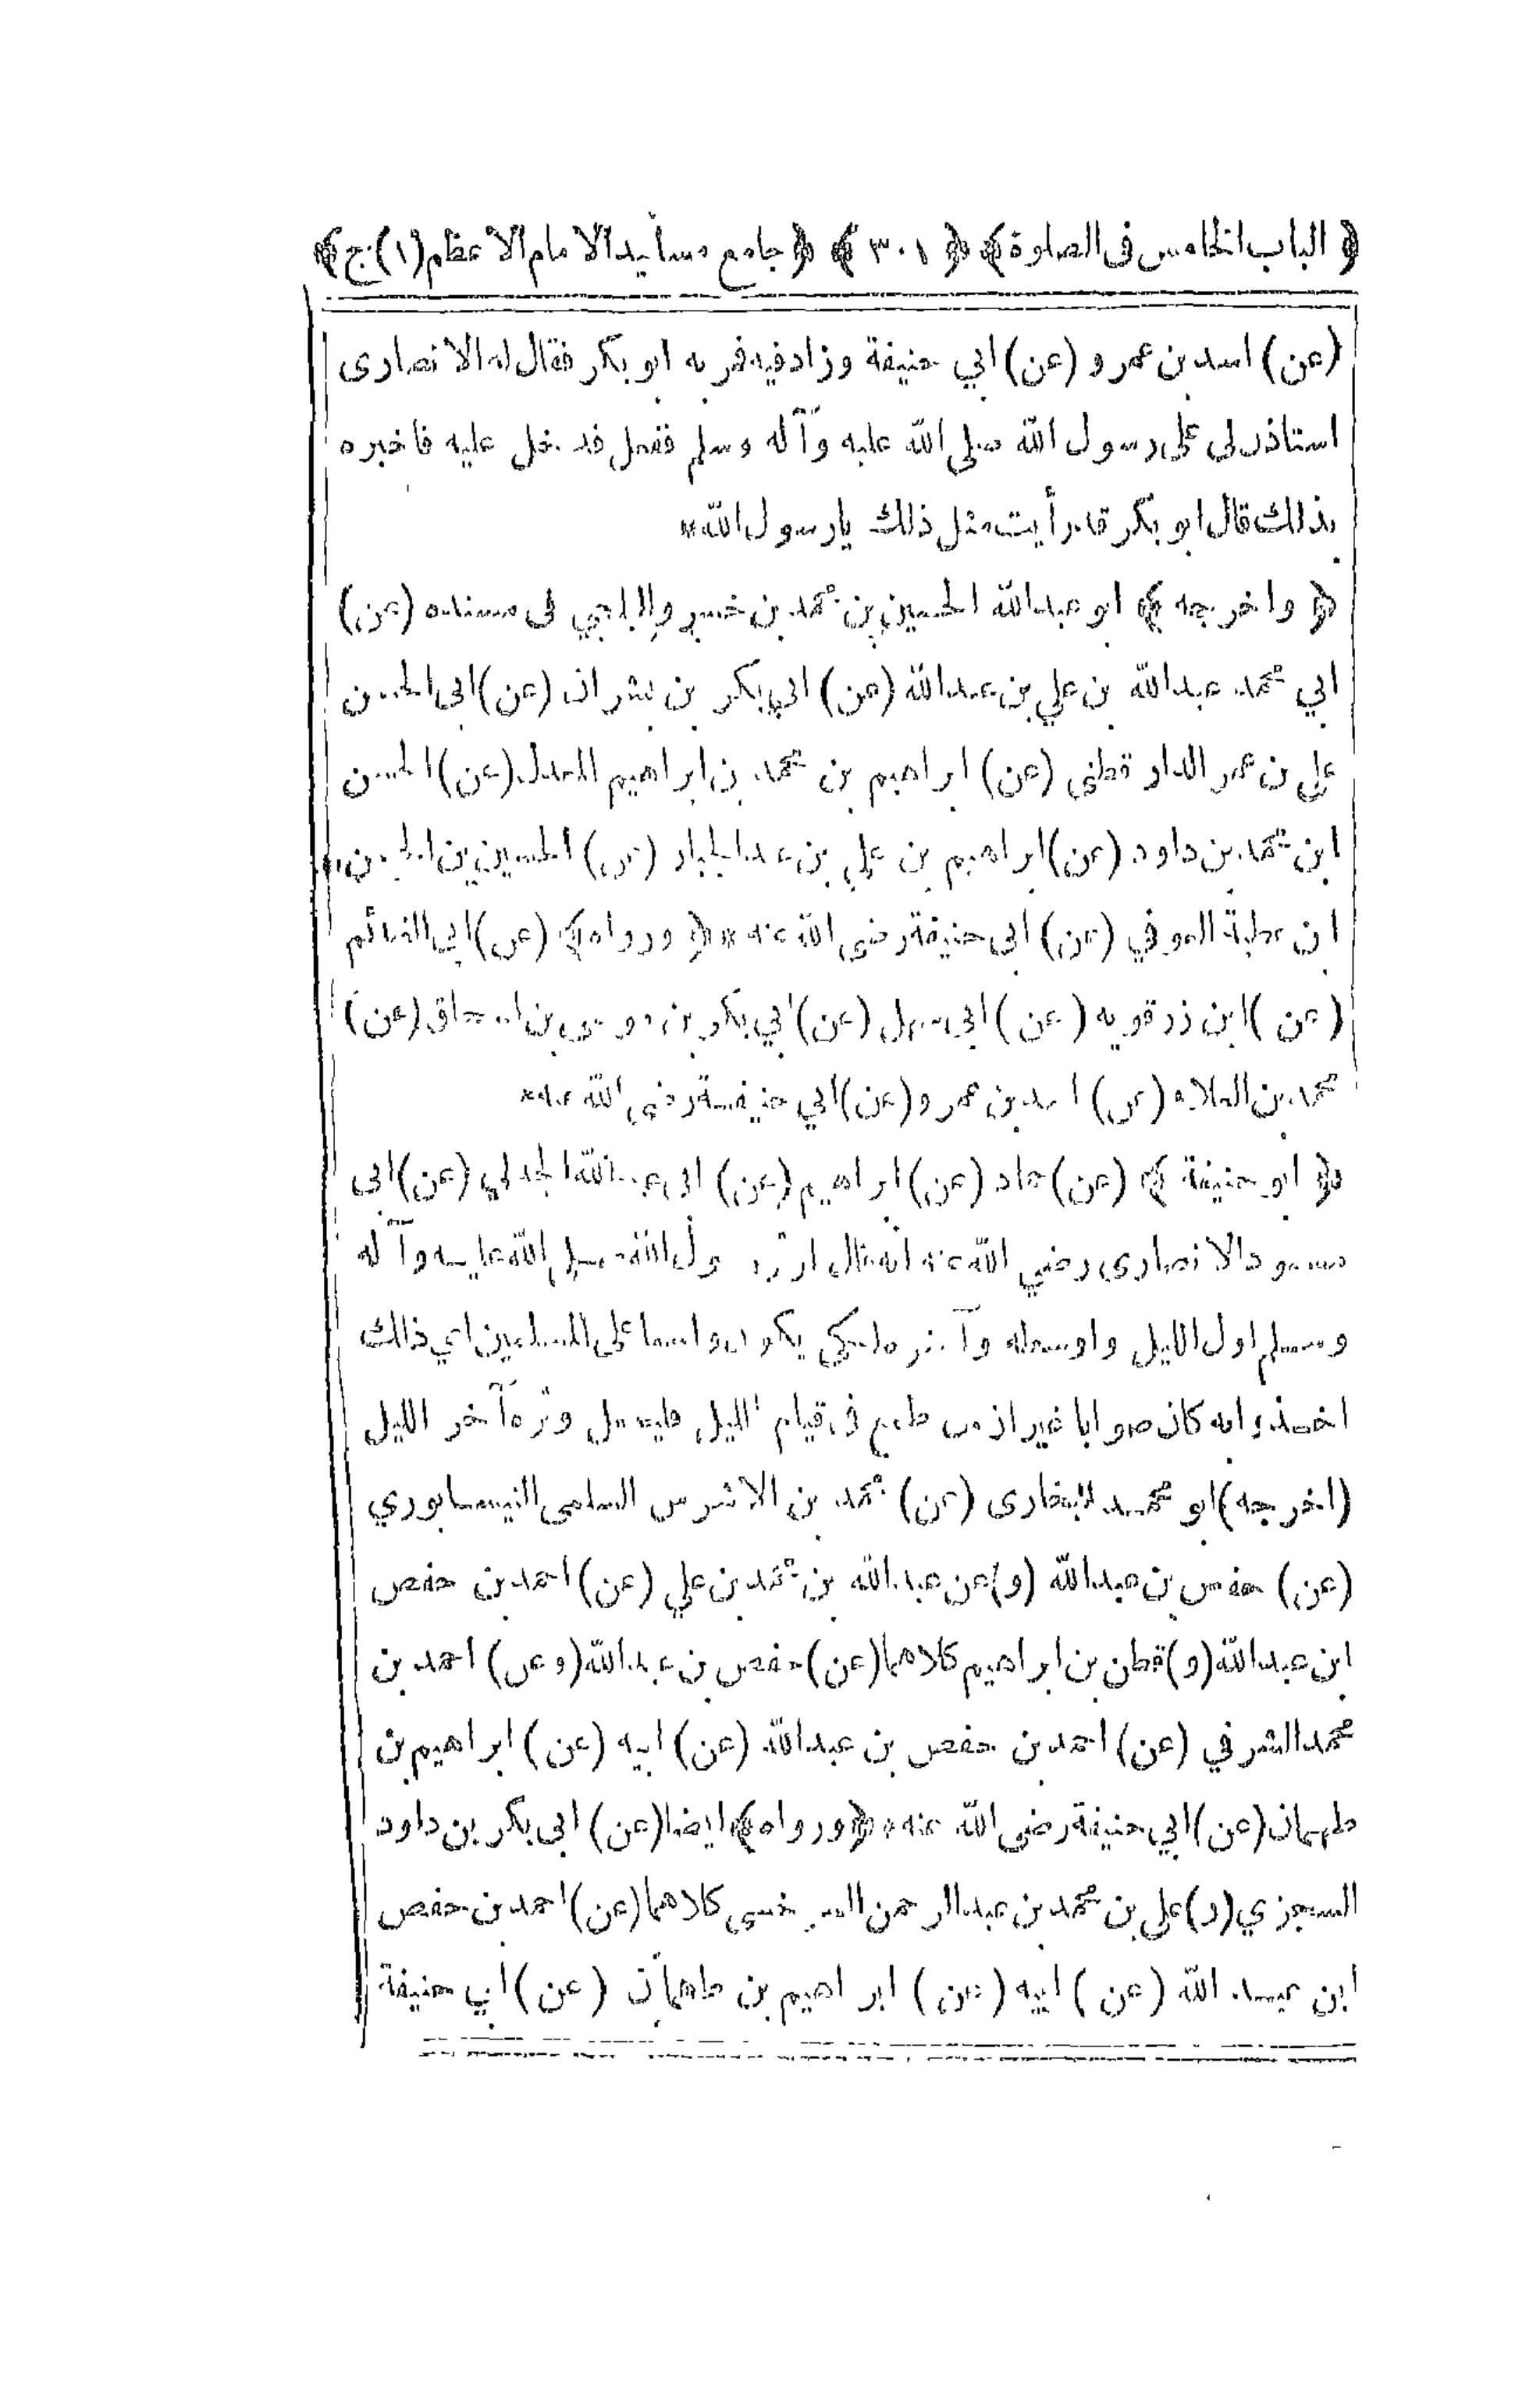 ﴿ الباب الخامس فى الصلوة ﴾ ﴿ ٣٠١ ﴾ ﴿ جامع مسانيد الامام الاعظم (١) ج ﴾
(عن) اسد بن عمرو (عن) ابي حنيفة وزاد فيه فمر به ابو بكر فقال له الانصارى
استاذن لى على رسول الله صلى الله عليه وآله وسلم ففعل فدخل عليه فاخبره
بذلك قال ابو بكر قد رأيت مثل ذلك يا رسول الله *
﴿ واخرجه ﴾ ابو عبدالله الحسين بن محمد بن خسرو البلخي فى مسنده (عن)
ابي محمد عبدالله بن علي بن عبدالله (عن) ابي بكر بن بشران (عن) ابى الحسن
علي بن عمر الدارقطنى (عن) ابراهيم بن محمد بن ابراهيم المعدل (عن) الحسن
ابن محمد بن داود (عن) ابراهيم بن علي بن عبدالجبار (عن) الحسين بن الحسن
ابن عطية العوفي (عن) ابى حنيفة رضى الله عنه * ﴿ ورواه ﴾ (عن) ابى الغنائم
(عن) ابن زرقويه (عن) ابى سهل (عن) ابي بكر بن موسى بن اسحاق (عن)
محمد بن العلاء (عن) اسد بن عمرو (عن) ابي حنيفة رضى الله عنه *
﴿ ابو حنيفة ﴾ (عن) حماد (عن) ابراهيم (عن) ابى عبدالله الجدلي (عن) ابى
مسعود الانصارى رضي الله عنه انه قال اوتر رسول الله صلى الله عليه وآله
وسلم اول الليل واوسطه وآخره لكى يكون واسعا على المسلمين اي ذلك
اخذوا به كان صوابا غير ان من طمع فى قيام الليل فليجعل وتره آخر الليل
(اخرجه) ابو محمد البخارى (عن) محمد بن الاشرس السلمى النيسابوري
(عن) حفص بن عبدالله (و) عن عبدالله بن محمد بن علي (عن) احمد بن حفص
ابن عبدالله (و) قطن بن ابراهيم كلاهما (عن) حفص بن عبدالله (وعن) احمد بن
محمد الشرفي (عن) احمد بن حفص بن عبدالله (عن) ابيه (عن) ابراهيم بن
طهمان (عن) ابي حنيفة رضى الله عنه * ﴿ ورواه ﴾ ايضا (عن) ابى بكر بن داود
السجزي (و) على بن محمد بن عبدالرحمن السرخسى كلاهما (عن) احمد بن حفص
ابن عبد الله (عن) ابيه (عن) ابراهيم بن طهمان (عن) ابي حنيفة